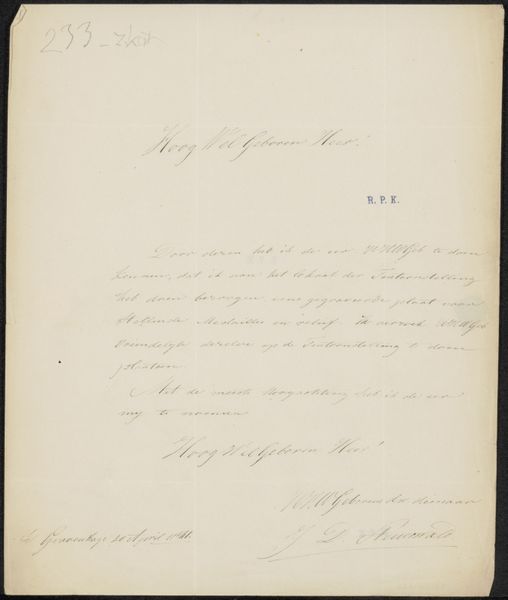 233 -
Hoog Wel Geboren Heer!
R. P. K.
Door dezen heb ik de eer UHWGeb te doen
dat ik aan het Lokaal der Tentoonstelling
heb doen bezorgen eene gegraveerde plaat voor
Medailles en relief. Ik verzoek UHWGeb
vriendelijk dezelve op de Tentoonstelling te doen
plaatsen
Met de meeste Hoogachting heb ik de eer
mij te noemen
Hoog Wel Geboren Heer!
UHWGeborens dw dienaar
J. D.
s Gravenhage 20 April